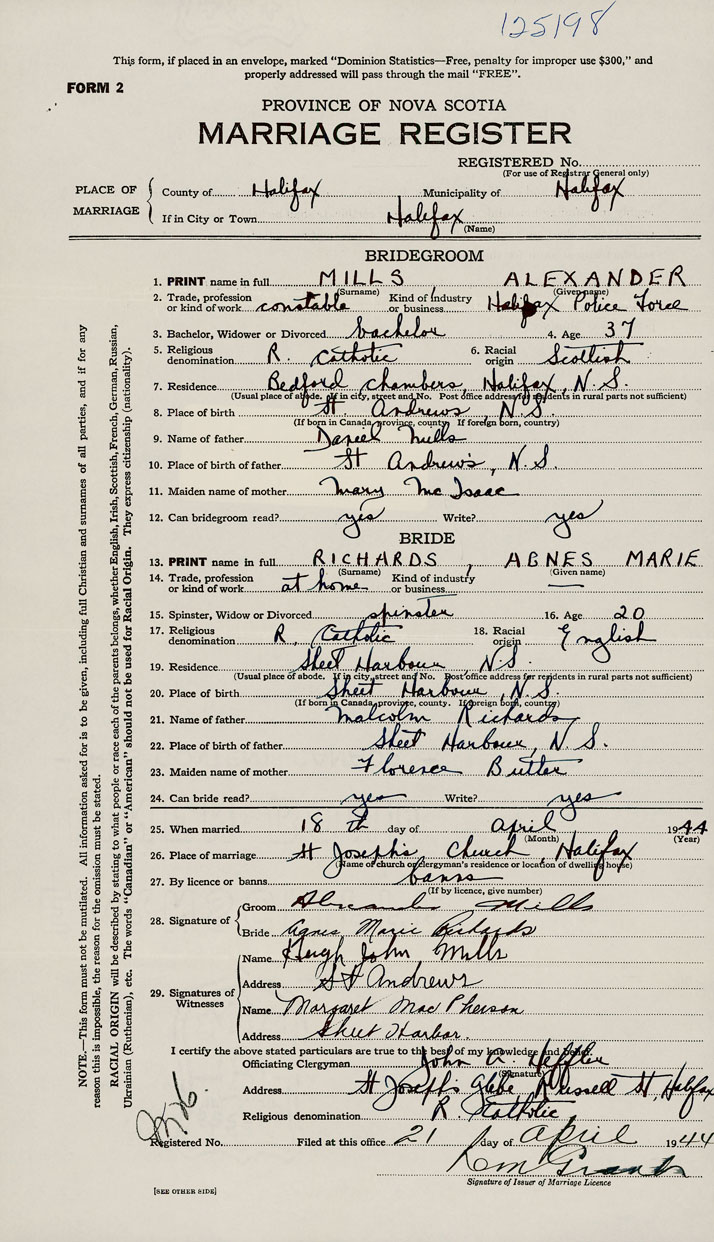 125198
This form, if placed in an envelope, marked “Dominion Statistics—Free, penalty for improper use $300,” and
properly addressed will pass through the mail “FREE”.
FORM 2
PROVINCE OF NOVA SCOTIA
MARRIAGE REGISTER
REGISTERED No.
(For use of Registrar General only)
PLACE OF MARRIAGE
County of Halifax Municipality of Halifax
If in City or Town Halifax
(Name)
BRIDEGROOM
1. PRINT name in full MILLS, ALEXANDER
(Surname) (Given name)
2. Trade, profession or kind of work constable Kind of industry or business Halifax Police Force
3. Bachelor, Widower or Divorced bachelor 4. Age 37
5. Religious denomination R. Catholic 6. Racial origin Scottish
7. Residence Bedford Chambers, Halifax, N.S.
(Usual place of abode. If in city, street and No. Post office address for residents in rural parts not sufficient)
8. Place of birth St. Andrews, N.S.
(If born in Canada, province, county. If foreign born, country)
9. Name of father Daniel Mills
10. Place of birth of father St Andrew's, N.S.
11. Maiden name of mother Mary McIsaac
12. Can bridegroom read? yes Write? yes
BRIDE
13. PRINT name in full RICHARDS, AGNES MARIE
(Surname) (Given name)
14. Trade, profession or kind of work at home Kind of industry or business —
15. Spinster, Widow or Divorced spinster 16. Age 20
17. Religious denomination R. Catholic 18. Racial origin English
19. Residence Sheet Harbour, N.S.
(Usual place of abode. If in city, street and No. Post office address for residents in rural parts not sufficient)
20. Place of birth Sheet Harbour, N.S.
(If born in Canada, province, county. If foreign born, country)
21. Name of father Malcolm Richards
22. Place of birth of father Sheet Harbour, N.S.
23. Maiden name of mother Florence Butler
24. Can bride read? yes Write? yes
25. When married 18th day of April 1944
(Month) (Year)
26. Place of marriage St Joseph's Church, Halifax
(Name of church or clergyman's residence or location of dwelling house)
27. By licence or banns banns
(If by licence, give number)
28. Signature of
Groom Alexander Mills
Bride Agnes Marie Richards
29. Signatures of Witnesses
Name Hugh John Mills
Address St Andrews
Name Margaret MacPherson
Address Sheet Harbor.
I certify the above stated particulars are true to the best of my knowledge and belief.
Officiating Clergyman John A. Heffler
(Signature)
Address St Joseph's Glebe, Russell St, Halifax
Religious denomination R. Catholic
Registered No. Filed at this office 21 day of April 1944
Signature of Issuer of Marriage Licence
[SEE OTHER SIDE]
NOTE.—This form must not be mutilated. All information asked for is to be given, including full Christian and surnames of all parties, and if for any
reason this is impossible, the reason for the omission must be stated.
RACIAL ORIGIN will be described by stating to what people or race each of the parents belongs, whether English, Irish, Scottish, French, German, Russian,
Ukrainian (Ruthenian), etc. The words “Canadian” or “American” should not be used for Racial Origin. They express citizenship (nationality).